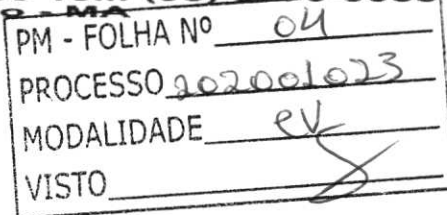 - MA
PM - FOLHA Nº 04
PROCESSO 202001023
MODALIDADE
VISTO